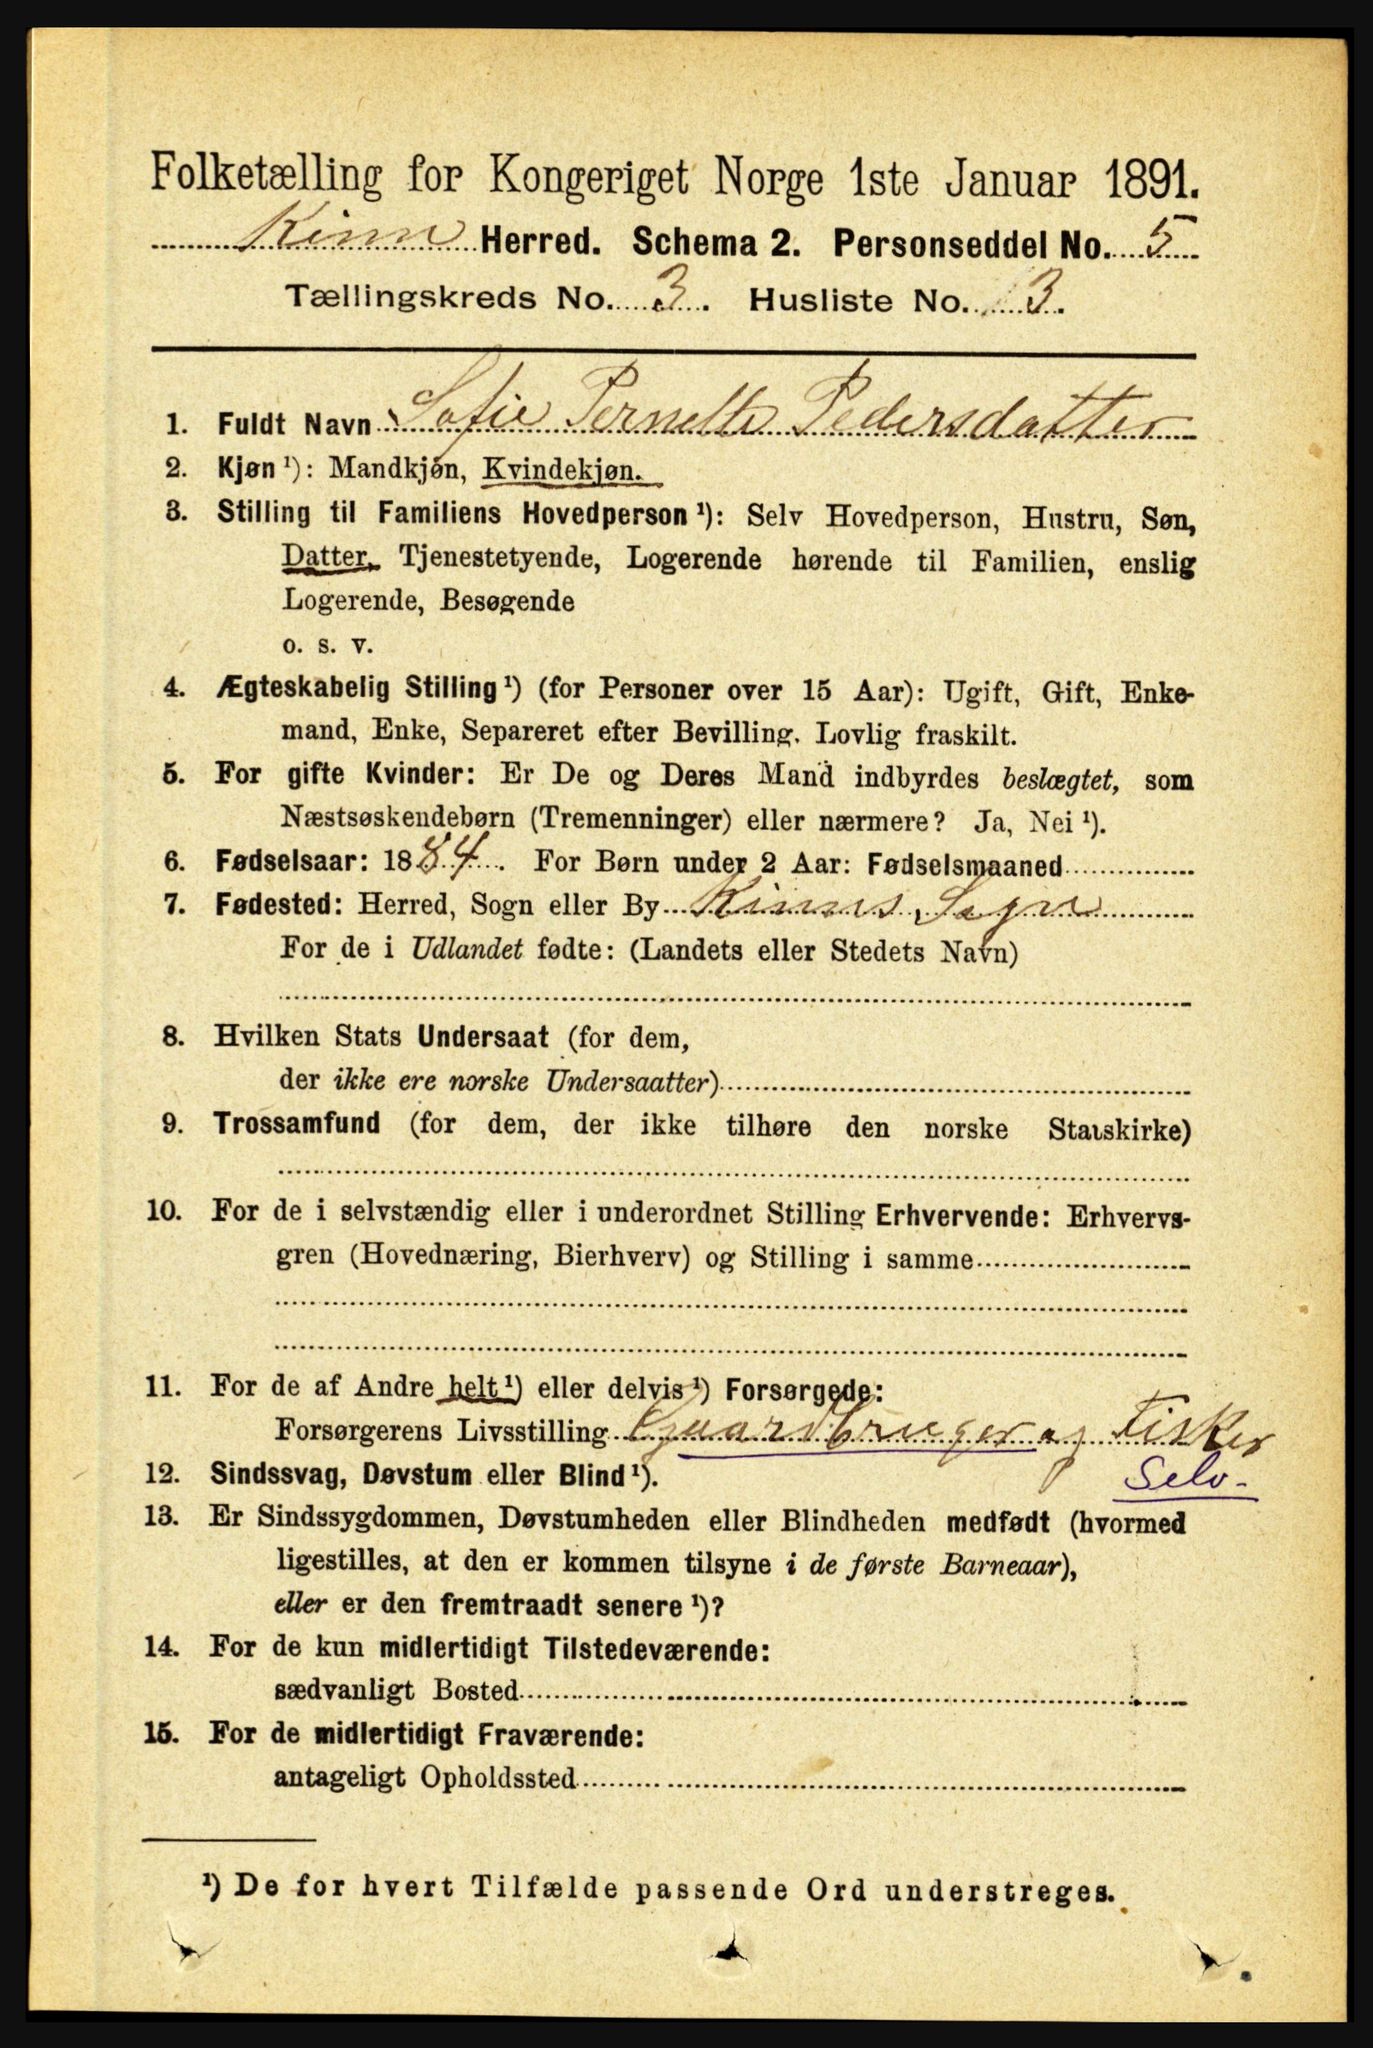 Folketælling for Kongeriget Norge 1ste Januar 1891.
Kinn Herred. Schema 2. Personseddel No. 5
Tællingskreds No. 3. Husliste No. 3.
1. Fuldt Navn Sofie Pernelle Pedersdatter
2. Kjøn ¹): Mandkjøn, Kvindekjøn.
3. Stilling til Familiens Hovedperson ¹): Selv Hovedperson, Hustru, Søn,
Datter, Tjenestetyende, Logerende hørende til Familien, enslig
Logerende, Besøgende
o. s. v.
4. Ægteskabelig Stilling ¹) (for Personer over 15 Aar): Ugift, Gift, Enke-
mand, Enke, Separeret efter Bevilling. Lovlig fraskilt.
5. For gifte Kvinder: Er De og Deres Mand indbyrdes beslægtet, som
Næstsøskendebørn (Tremenninger) eller nærmere? Ja, Nei ¹).
6. Fødselsaar: 1884. For Børn under 2 Aar: Fødselsmaaned
7. Fødested: Herred, Sogn eller By Kinns Sogn
For de i Udlandet fødte: (Landets eller Stedets Navn)
8. Hvilken Stats Undersaat (for dem,
der ikke ere norske Undersaatter)
9. Trossamfund (for dem, der ikke tilhøre den norske Statskirke)
10. For de i selvstændig eller i underordnet Stilling Erhvervende: Erhvervs-
gren (Hovednæring, Bierhverv) og Stilling i samme
11. For de af Andre helt ¹) eller delvis ¹) Forsørgede:
Forsørgerens Livsstilling Gaardbruger og Fisker
12. Sindssvag, Døvstum eller Blind ¹). Selv-
13. Er Sindssygdommen, Døvstumheden eller Blindheden medfødt (hvormed
ligestilles, at den er kommen tilsyne i de første Barneaar),
eller er den fremtraadt senere ¹)?
14. For de kun midlertidigt Tilstedeværende:
sædvanligt Bosted
15. For de midlertidigt Fraværende:
antageligt Opholdssted
¹) De for hvert Tilfælde passende Ord understreges.